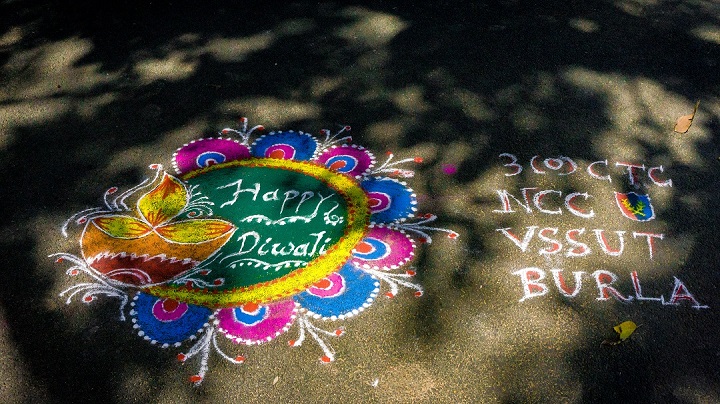 Happy
Diwali
3(O) CTC
NCC
VSSUT
BURLA